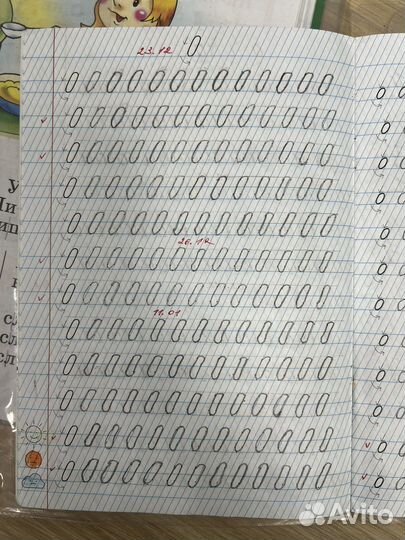 23.12 0
0 0 0 0 0 0 0 0 0 0 0 0 0 0
0 0 0 0 0 0 0 0 0 0 0 0 0 0
0 0 0 0 0 0 0 0 0 0 0 0 0 0
0 0 0 0 0 0 0 0 0 0 0 0 0 0
0 0 0 0 0 0 0 0 0 0 0 0 0 0
26.12
0 0 0 0 0 0 0 0 0 0 0 0 0 0
0 0 0 0 0 0 0 0 0 0 0 0 0 0
11.01
0 0 0 0 0 0 0 0 0 0 0 0 0 0
0 0 0 0 0 0 0 0 0 0 0 0 0 0
0 0 0 0 0 0 0 0 0 0 0 0 0 0
0 0 0 0 0 0 0 0 0 0 0 0 0 0
0 0 0 0 0 0 0 0 0 0 0 0 0 0
Avito